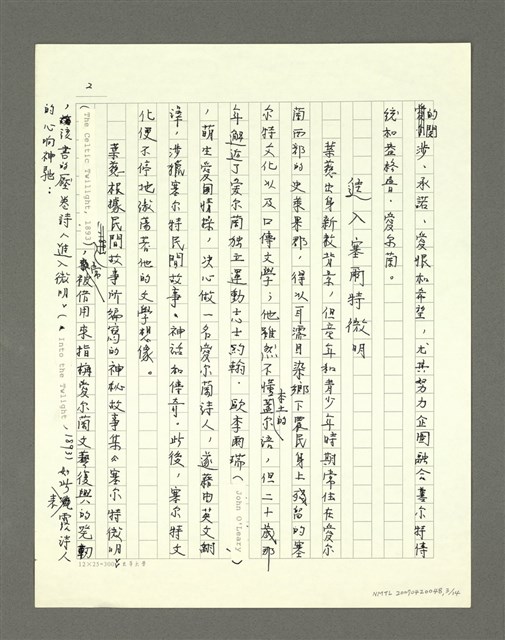 的關涉、承諾、愛恨和希望，尤其努力企圖融合塞尔特傳
統和盎格魯．愛尔蘭。
進入塞爾特微明
葉慈出身新教背景，但童年和青少年時期常住在愛尔
蘭西部的史萊果郡，得以耳濡目染鄉下農民身上殘留的塞
尔特文化以及口傳文學；他雖然不懂本土的蓋尔语，但二十歲那
年邂逅了愛尔蘭独立運動志士約翰．歐李爾瑞（John O'Leary）
，萌生愛國情操，決心做一名愛尔蘭詩人，遂藉由英文翻
譯，涉獵塞尔特民間故事、神話和傳奇。此後，塞尔特文
化便不停地激盪著他的文學想像。
葉慈根據民間故事所編寫的神秘故事集《塞尔特微明》
（The Celtic Twilight, 1893），進常被借用來指稱愛尔蘭文藝復興的発動
，該書的壓卷詩〈進入微明〉（Into the Twilight, 1893）如此表露詩人
的心响神馳：
2
12×25=300
NMTL 20090420048, 2/14